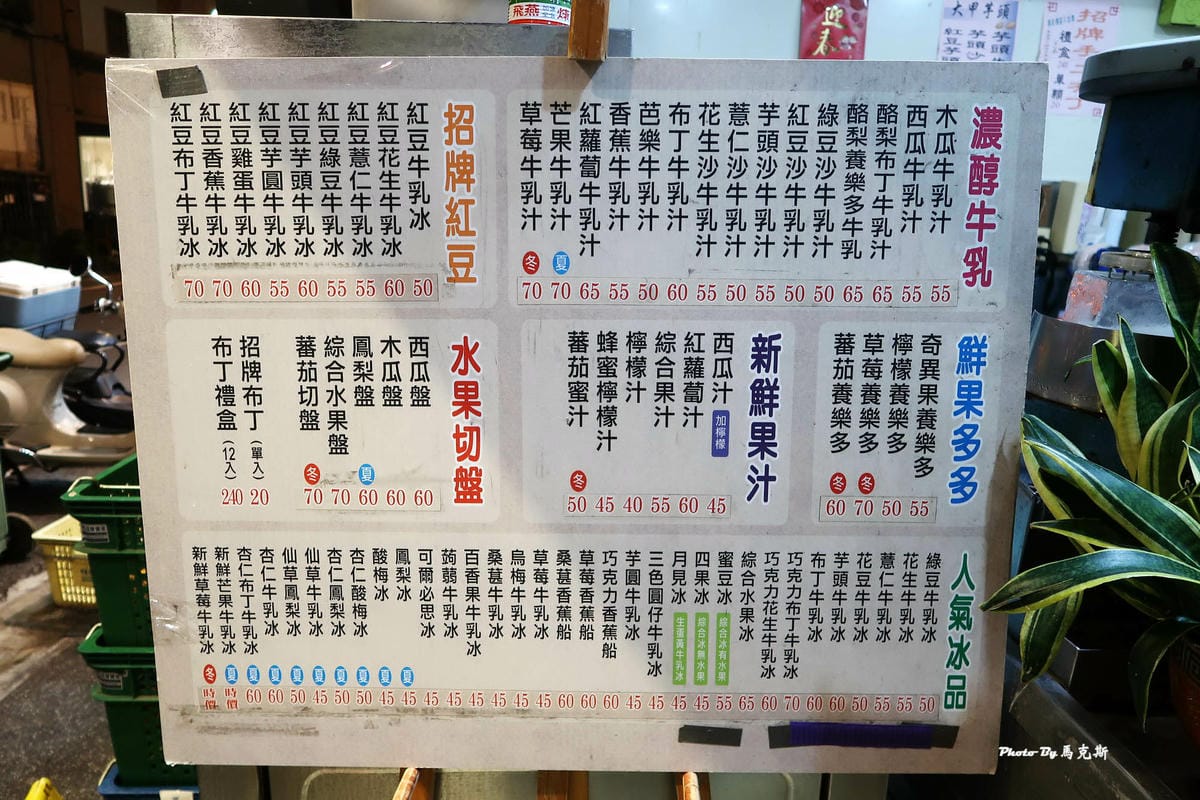 濃醇牛乳
木瓜牛乳汁
西瓜牛乳汁
酪梨布丁牛乳汁
酪梨養樂多牛乳
綠豆沙牛乳汁
紅豆沙牛乳汁
芋頭沙牛乳汁
薏仁沙牛乳汁
花生沙牛乳汁
布丁牛乳汁
芭樂牛乳汁
香蕉牛乳汁
紅蘿蔔牛乳汁
芒果牛乳汁 夏
草莓牛乳汁 冬
70 70 65 55 50 60 55 50 55 50 50 65 65 55 55
招牌紅豆
紅豆牛乳冰
紅豆花生牛乳冰
紅豆薏仁牛乳冰
紅豆綠豆牛乳冰
紅豆芋頭牛乳冰
紅豆芋圓牛乳冰
紅豆雞蛋牛乳冰
紅豆香蕉牛乳冰
紅豆布丁牛乳冰
70 70 60 55 60 55 55 60 50
鮮果多多
奇異果養樂多
檸檬養樂多
草莓養樂多 冬
蕃茄養樂多 冬
60 70 50 55
新鮮果汁
西瓜汁 加檸檬
紅蘿蔔汁
綜合果汁
檸檬汁
蜂蜜檸檬汁
蕃茄蜜汁 冬
50 45 40 55 60 45
水果切盤
西瓜盤
木瓜盤
鳳梨盤 夏
綜合水果盤
蕃茄切盤 冬
70 70 60 60 60
招牌布丁(單入) 20
布丁禮盒(12入) 240
人氣冰品
綠豆牛乳冰
花生牛乳冰
薏仁牛乳冰
花豆牛乳冰
芋頭牛乳冰
布丁牛乳冰
巧克力布丁牛乳冰
巧克力花生牛乳冰
綜合水果冰
蜜豆冰 綜合冰有水果
四果冰 綜合冰無水果
月見冰 生蛋黃牛乳冰
三色圓仔牛乳冰
芋圓牛乳冰
巧克力香蕉船
草莓香蕉船
桑葚香蕉船
草莓牛乳冰
烏梅牛乳冰
桑葚牛乳冰
百香果牛乳冰
蒟蒻牛乳冰
可爾必思冰
鳳梨冰 夏
酸梅冰 夏
杏仁酸梅冰 夏
杏仁鳳梨冰 夏
仙草牛乳冰 夏
仙草鳳梨冰 夏
杏仁牛乳冰 夏
杏仁布丁牛乳冰 夏
新鮮芒果牛乳冰 夏
新鮮草莓牛乳冰 冬
時價 時價 60 60 50 45 50 50 45 45 45 45 45 45 45 45 60 60 60 45 45 45 45 55 65 60 70 60 60 50 55 55 50
飛燕 煉
迎春
大甲芋頭
招牌
Photo By 馬克斯